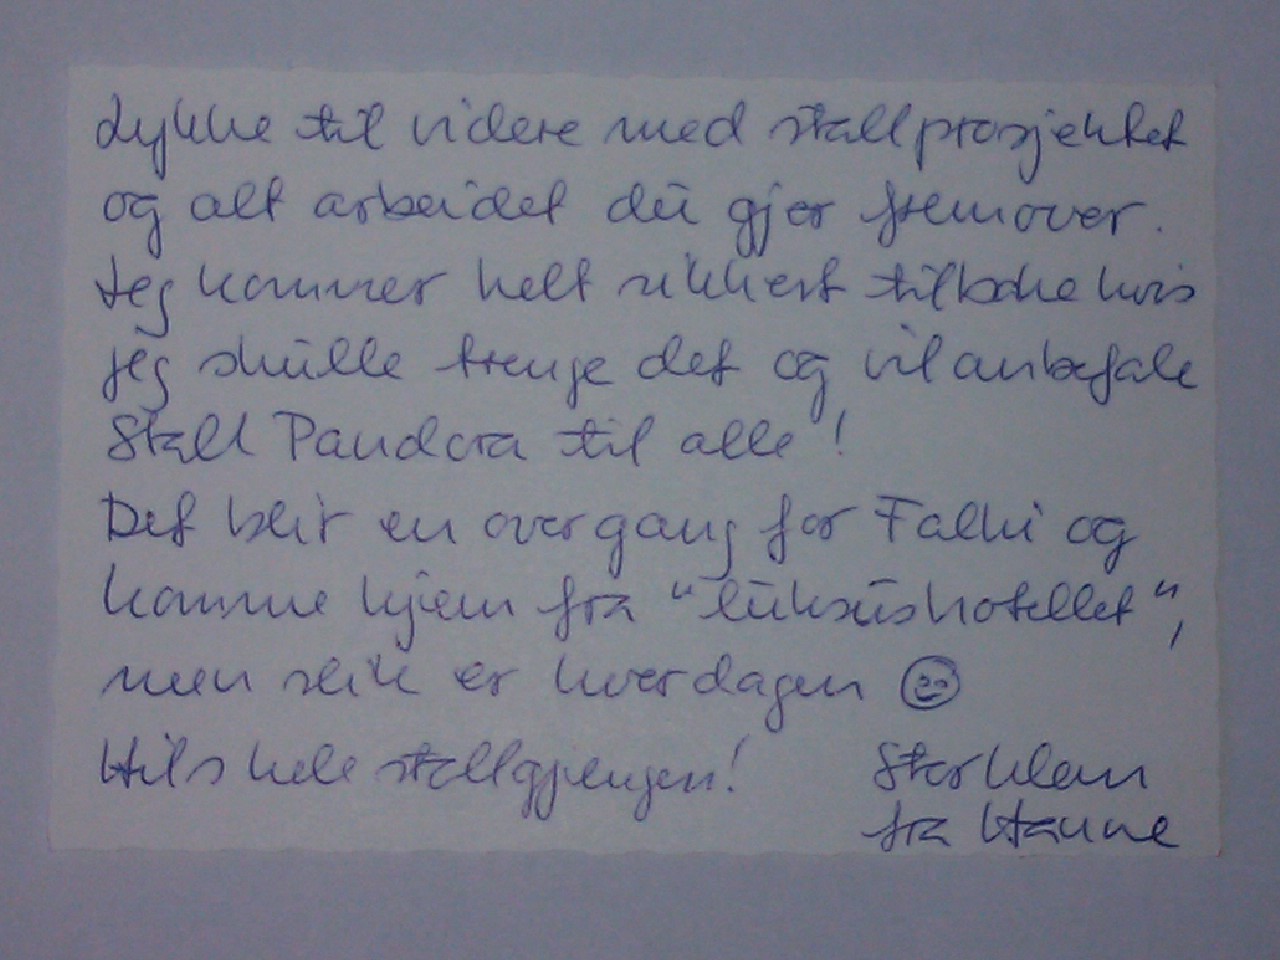 Lykke til videre med stallprosjektet
og alt arbeidet du gjør fremover.
Jeg kommer helt sikkert tilbake hvis
jeg skulle trenge det og vil anbefale
Stall Pandora til alle!
Det blir en overgang for Falki og
komme hjem fra "luksushotellet",
men slik er hverdagen ☺
Hils hele stallgjengen! Stor klem
fra Hanne